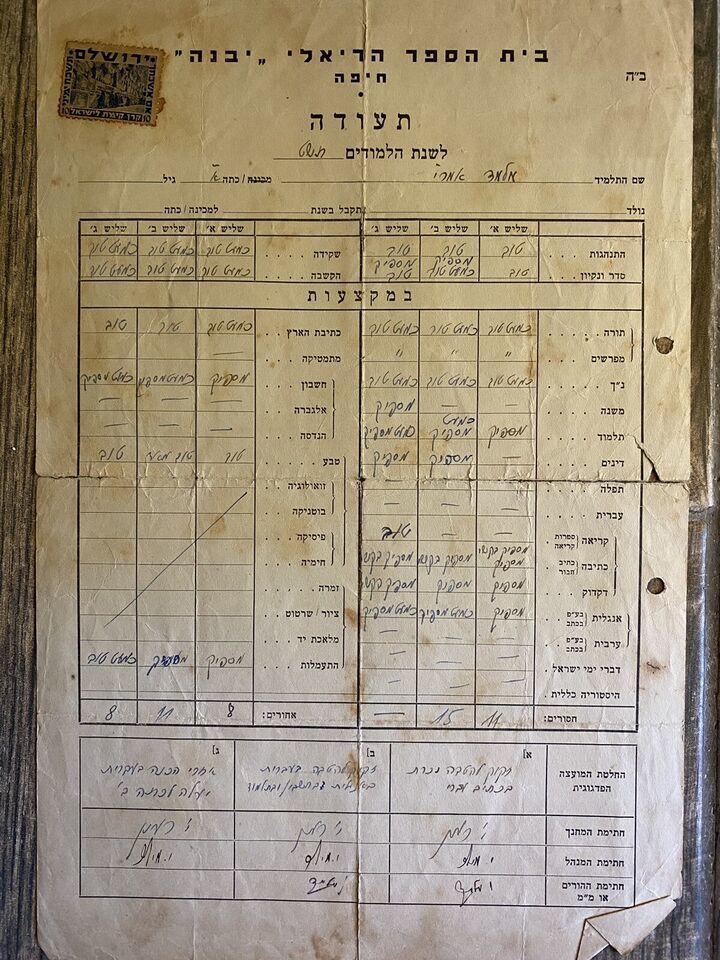 ירושלים
קרן קימת לישראל
בית הספר הריאלי "יבנה"
חיפה
ב"ה
תעודה
לשנת הלמודים תשט
שם התלמיד מלמד אמרי מכינה/כתה א' גיל
נולד נתקבל בשנת למכינה/כתה
שליש א' שליש ב' שליש ג' שליש א' שליש ב' שליש ג'
התנהגות טוב טוב טוב שקידה כמעט טוב כמעט טוב כמעט טוב
סדר ונקיון טוב כמעט טוב מספיק הקשבה כמעט טוב כמעט טוב כמעט טוב
במקצעות
תורה כמעט טוב כמעט טוב כמעט טוב כתיבת הארץ כמעט טוב טוב טוב
מפרשים " " " מתמטיקה —
נ"ך כמעט טוב כמעט טוב כמעט טוב חשבון מספיק כמעט מספיק כמעט מספיק
משנה — — מספיק אלגברה — — —
תלמוד מספיק כמעט מספיק כמעט מספיק הנדסה — — —
דינים — מספיק מספיק טבע טוב טוב מאד טוב
תפלה — — — זואולוגיה
עברית — — — בוטניקה
קריאה ספרות קריאה — — טוב פיסיקה
כתיבה כתיב חבור מספיק בקשי מספיק מספיק בקשי מספיק בקשי חימיה
דקדוק מספיק מספיק מספיק בקשי זמרה
אנגלית בע"פ בכתב מספיק כמעט מספיק כמעט מספיק ציור/שרטוט
ערבית בע"פ בכתב — — — מלאכת יד
דברי ימי ישראל — — — התעמלות מספיק מספיק כמעט טוב
היסטוריה כללית — — —
חסורים: 11 15 — אחורים: 8 11 8
א] ב] ג]
החלטת המועצה הפדגוגית
זקוק להטבה נכרת
זקוק להטבה בעברית
אחרי הכנה בעברית
יעלה לכתה ב'
חתימת המחנך
חתימת המנהל
חתימת ההורים
או מ"מ